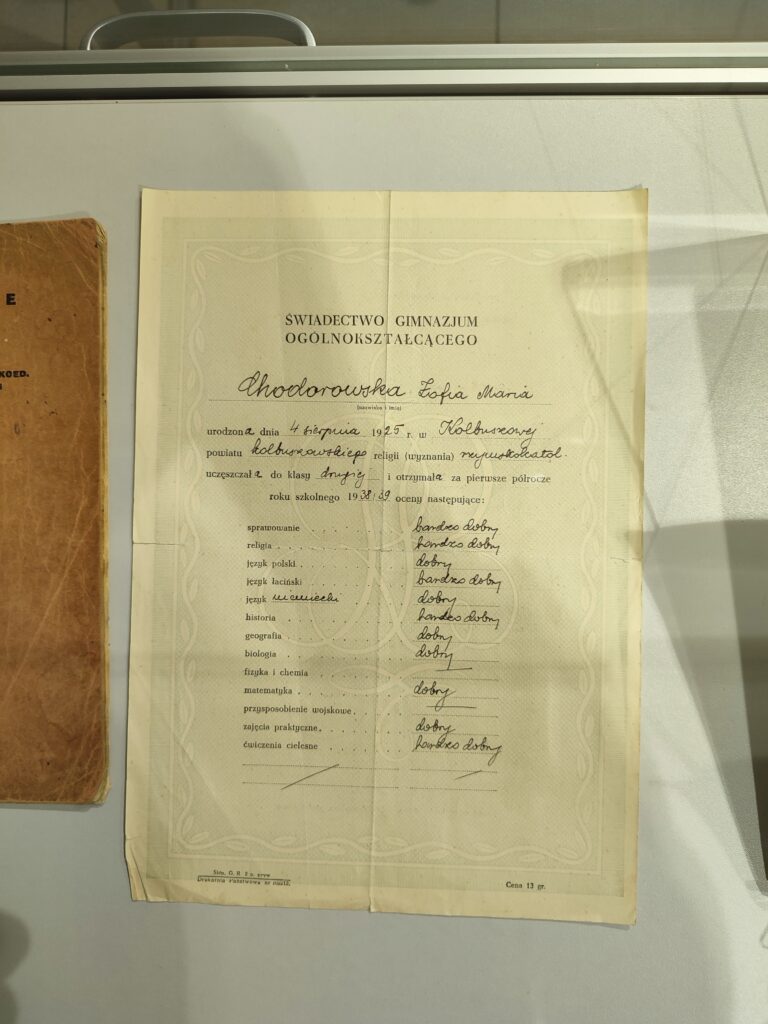 E
KOED.
ŚWIADECTWO GIMNAZJUM
OGÓLNOKSZTAŁCĄCEGO
Chodorowska Zofia Maria
(nazwisko i imię)
urodzona dnia 4 sierpnia 1925 r. w Kolbuszowej
powiatu kolbuszowskiego religii (wyznania) rzymskokatol.
uczęszczała do klasy drugiej i otrzymała za pierwsze półrocze
roku szkolnego 1938/39 oceny następujące:
sprawowanie . . . . . bardzo dobry
religia . . . . . . . bardzo dobry
język polski . . . . . . dobry
język łaciński . . . . . bardzo dobry
język niemiecki . . . dobry
historia . . . . . . . bardzo dobry
geografia . . . . . . dobry
biologia . . . . . . . dobry
fizyka i chemia . . . . . —
matematyka . . . . . . dobry
przysposobienie wojskowe . . . —
zajęcia praktyczne . . . . . dobry
ćwiczenia cielesne . . . . . bardzo dobry
Drukarnia Państwowa
Cena 13 gr.